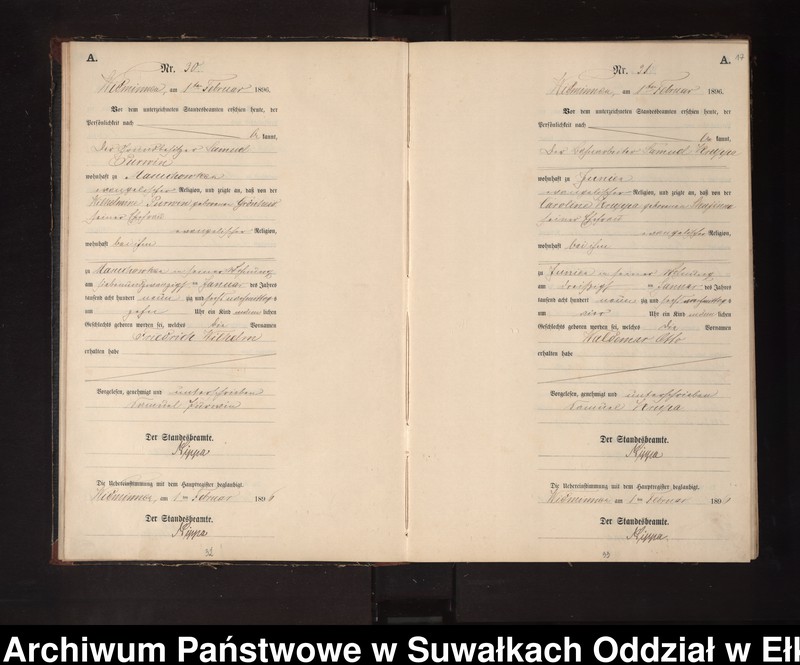 A.
Nr. 30.
Widminnen, am 1ten Februar 1896.
Vor dem unterzeichneten Standesbeamten erschien heute, der
Persönlichkeit nach
be kannt,
der Grundbesitzer Samuel
Purwin
wohnhaft zu
evangelischer Religion, und zeigte an, daß von der
Wilhelmine Purwin geborenen
seiner Ehefrau
evangelischer Religion,
wohnhaft bei ihm
zu in seiner Wohnung
am siebenundzwanzigsten Januar des Jahres
tausend acht hundert neun zig und sechs nachmittags
um Uhr ein Kind männlichen
Geschlechts geboren worden sei, welches die Vornamen
Friedrich Wilhelm
erhalten habe
Vorgelesen, genehmigt und unterschrieben
Samuel Purwin
Der Standesbeamte.
Kippa
Die Uebereinstimmung mit dem Hauptregister beglaubigt.
Widminnen, am 1ten Februar 1896
Der Standesbeamte.
Kippa
A.
Nr. 31.
Widminnen, am 1ten Februar 1896.
Vor dem unterzeichneten Standesbeamten erschien heute, der
Persönlichkeit nach
be kannt,
der Samuel Kruppa
wohnhaft zu
evangelischer Religion, und zeigte an, daß von der
Caroline Kruppa geborenen
seiner Ehefrau
evangelischer Religion,
wohnhaft bei ihm
zu in seiner Wohnung
am dreißigsten Januar des Jahres
tausend acht hundert neun zig und sechs nachmittags
um vier Uhr ein Kind männlichen
Geschlechts geboren worden sei, welches die Vornamen
Waldemar Otto
erhalten habe
Vorgelesen, genehmigt und unterschrieben
Samuel Kruppa
Der Standesbeamte.
Kippa
Die Uebereinstimmung mit dem Hauptregister beglaubigt.
Widminnen, am 1ten Februar 1896
Der Standesbeamte.
Kippa
Archiwum Państwowe w Suwałkach Oddział w Ełk